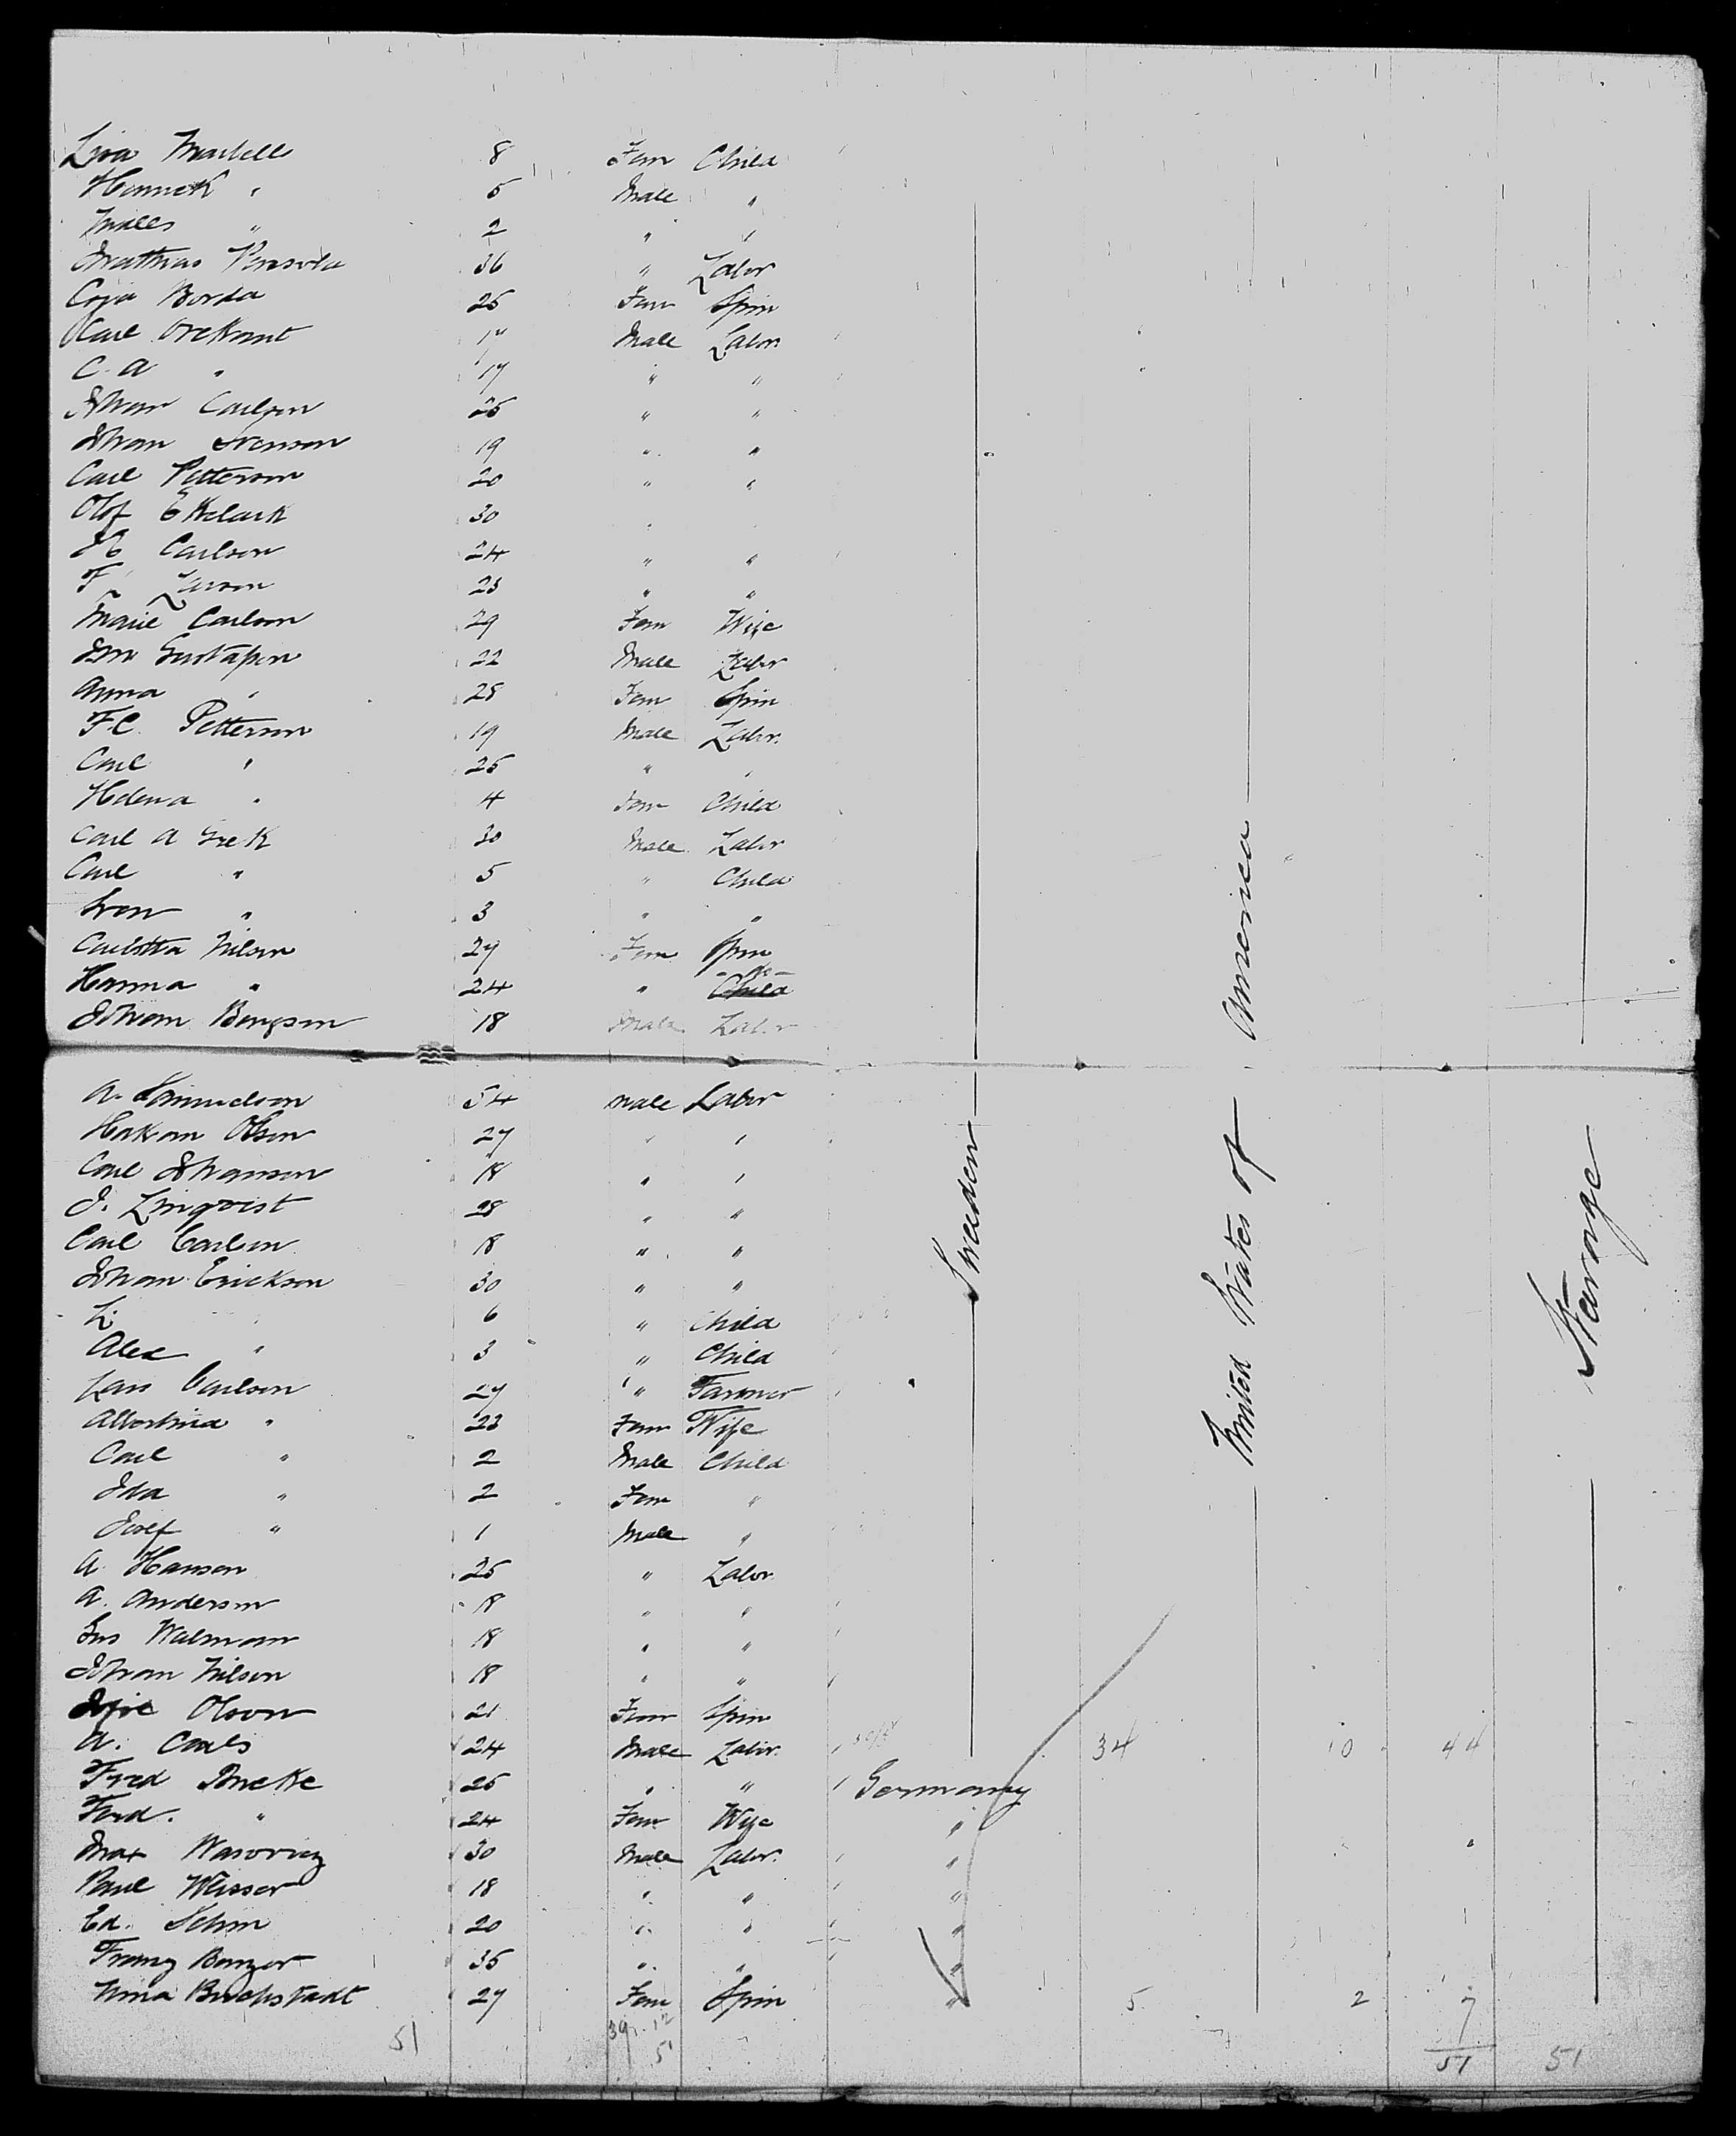 Lisa Martell 8 Fem Child
Hennek " 5 Male "
Nills " 2 " "
Mathias Persvela 36 " Labor
Caja Borda 25 Fem Spin
Carl Orekant Male Labor
C. A " 17 " "
Johan Carlson 25 " "
Johan Svenson 19 " "
Carl Petterson 20 " "
Olof Eklark 30
H Carlson 24 " "
F Larson 23 " "
Marie Carlson 29 Fem Wife
Gustafson 22 Male Labor
Anna " 28 Fem Spin
F C. Petterson 19 Male Labor.
Carl " 25 " "
Helena " 4 Fem Child
Carl A Grek 30 Male Labor
Carl " 5 " Child
Sven " 3 " "
Carlotta Nilson 29 Fem Spin
Hanna " 24 " do
Johan Bengson 18 Male Labor
A. Samuelson 54 Male Labor
Hakan Olson 27 " "
Carl Johanson 18 " "
J. Linqvist 28 " "
Carl Carlson 18 " "
Johan Erickson 30 " "
6 " Child
Alex " 3 " Child
Lars Carlson 27 " Farmer
Albertina " 23 Fem Wife
Carl " 2 Male Child
Ida " 2 Fem "
Josef " 1 Male "
A. Hanson 25 " Labor
A. Anderson 18 " "
Gus Walman 18 " "
Johan Nilson 18 " "
Olson 21 Fem Spin
A. Carls 24 Male Labor. 34 10 44
Fred 25 " " Germany
Ferd. " 24 Fem Wife "
Max 30 Male Labor. "
Paul Weisser 18 " " "
Ed. Sehm 20 " " "
Franz Banzer 35 " " "
Nina Buchstadt 27 Fem Spin " 5 2 7
51 39 12 51 51
51
Sweden
United States of America
Stearage